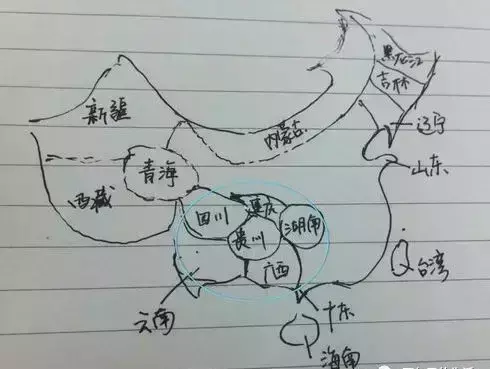 黑龙江
吉林
辽宁
新疆
内蒙古
山东
青海
西藏
四川
重庆
湖南
贵州
广西
台湾
云南
广东
海南